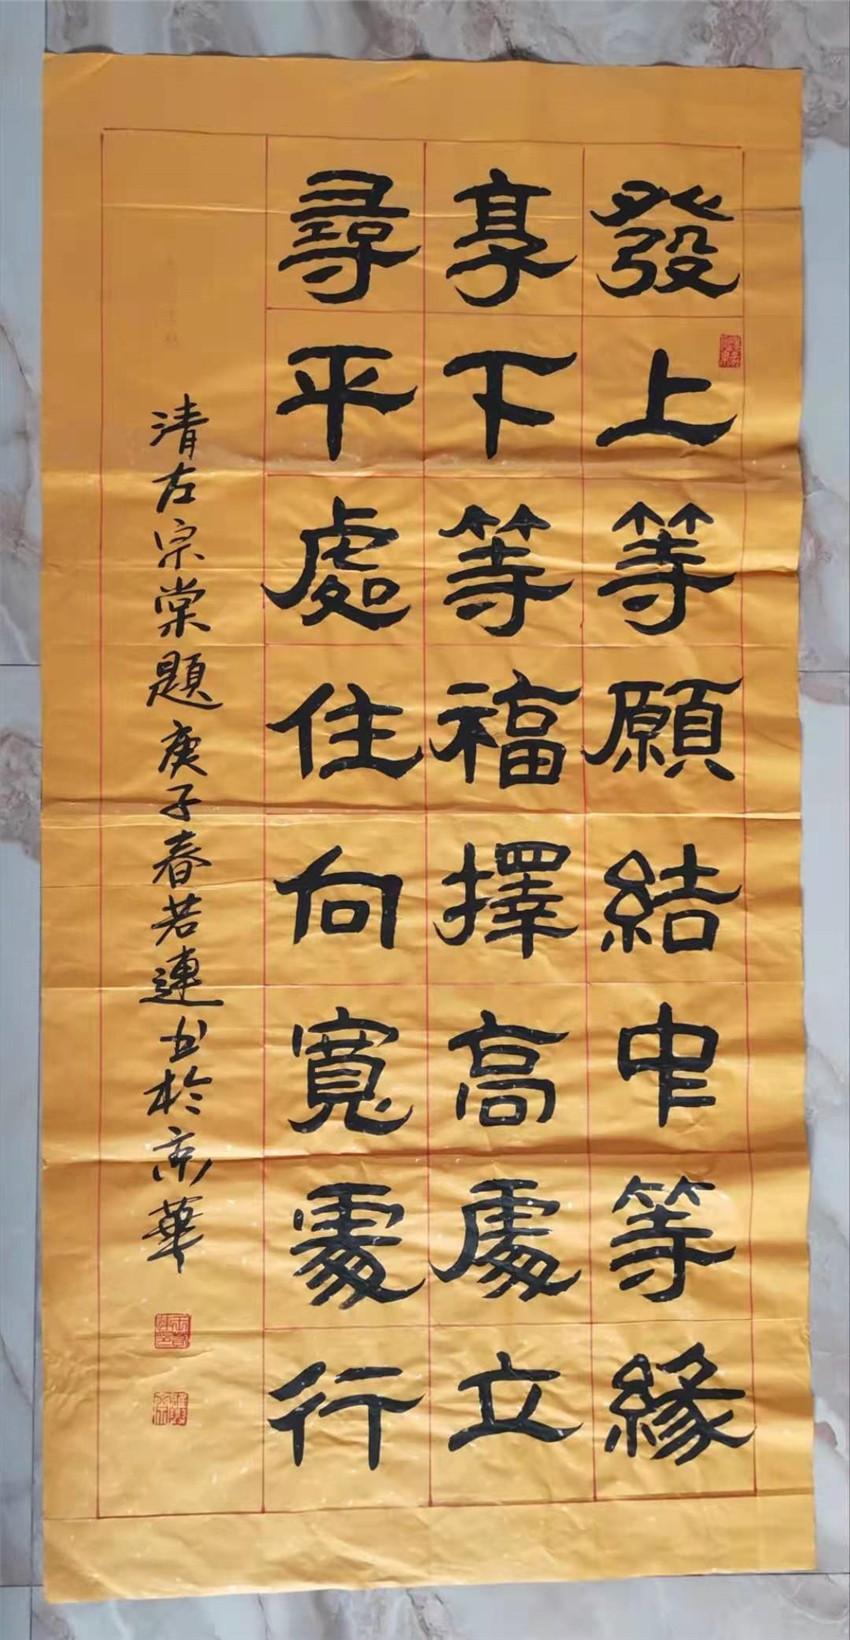 發上等願結中等緣
享下等福擇高處立
尋平處住向寬處行
清左宗棠題庚子春若連书於京華